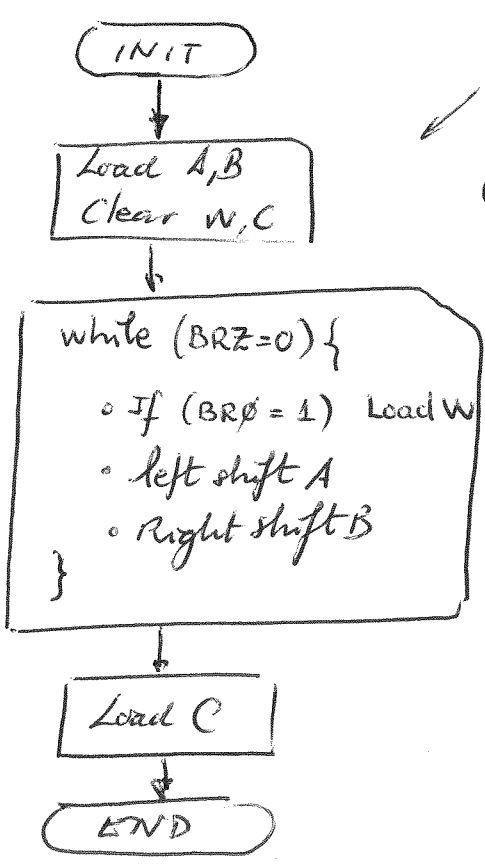 INIT
Load A,B
Clear W,C
while (BRZ=0) {
• If (BRØ = 1) Load W
• left shift A
• Right shift B
}
Load C
END